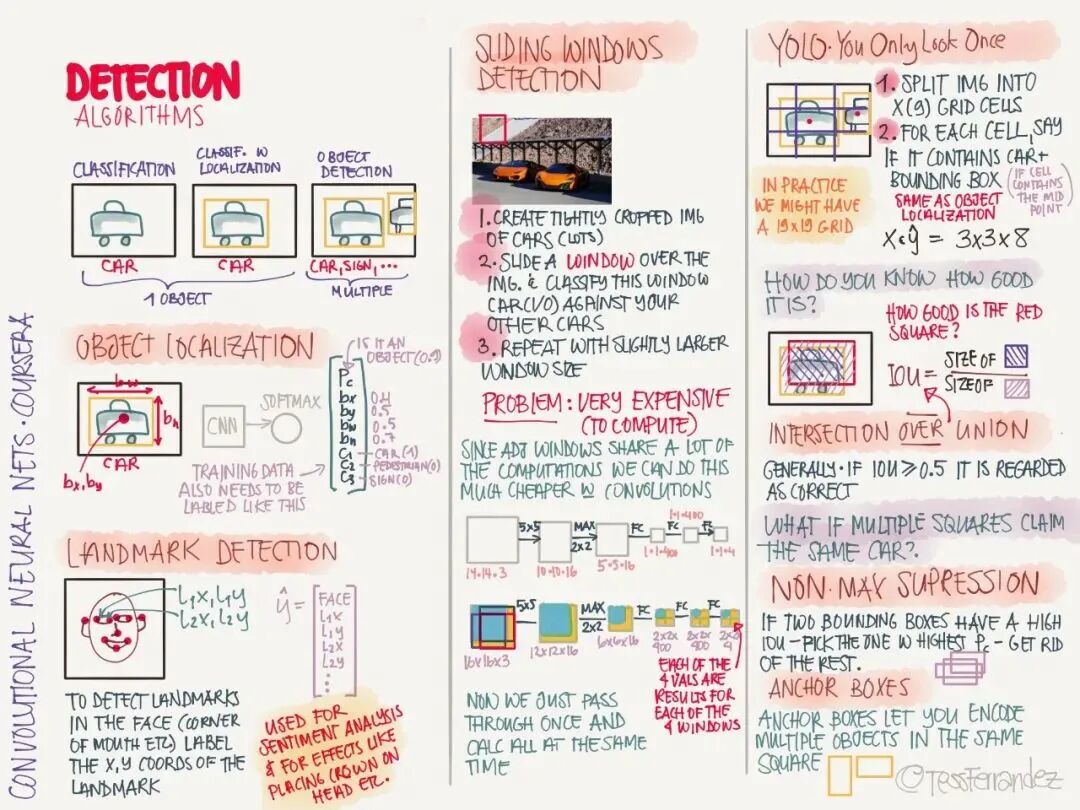 CONVOLUTIONAL NEURAL NETS · COURSERA
DETECTION
ALGORITHMS
CLASSIFICATION
CLASSIF. W
LOCALIZATION
OBJECT
DETECTION
CAR
CAR
CAR, SIGN, ...
1 OBJECT
MULTIPLE
OBJECT LOCALIZATION
bw
bh
bx, by
CAR
CNN
SOFTMAX
IS IT AN
OBJECT (0.1)
Pc
bx
by
bw
bh
C1
C2
C3
0.5
0.5
0.7
CAR (1)
PEDESTRIAN (0)
SIGN (0)
TRAINING DATA
ALSO NEEDS TO BE
LABLED LIKE THIS
LANDMARK DETECTION
L1X, L1Y
L2X, L2Y
ŷ =
FACE
L1X
L1Y
L2X
L2Y
⋮
TO DETECT LANDMARKS
IN THE FACE (CORNER
OF MOUTH ETC) LABEL
THE X,Y COORDS OF THE
LANDMARK
USED FOR
SENTIMENT ANALYSIS
& FOR EFFECTS LIKE
PLACING CROWN ON
HEAD ETC.
SLIDING WINDOWS
DETECTION
1. CREATE TIGHTLY CROPPED IMG
OF CARS (LOTS)
2. SLIDE A WINDOW OVER THE
IMG. & CLASSIFY THIS WINDOW
CAR(1/0) AGAINST YOUR
OTHER CARS
3. REPEAT WITH SLIGHTLY LARGER
WINDOW SIZE
PROBLEM: VERY EXPENSIVE
(TO COMPUTE)
SINCE ADJ WINDOWS SHARE A LOT OF
THE COMPUTATIONS WE CAN DO THIS
MUCH CHEAPER W CONVOLUTIONS
5x5
MAX
2x2
FC
FC
FC
1·1·400
14·14·3
10·10·16
5·5·16
1·1·400
1·1·4
5x5
MAX
2x2
FC
FC
FC
16x16x3
12x12x16
6x6x16
2x2x
400
2x2x
400
2x2x
4
EACH OF THE
4 VALS ARE
RESULTS FOR
EACH OF THE
4 WINDOWS
NOW WE JUST PASS
THROUGH ONCE AND
CALC ALL AT THE SAME
TIME
YOLO · You Only Look Once
1. SPLIT IMG INTO
X(9) GRID CELLS
2. FOR EACH CELL, SAY
IF IT CONTAINS CAR +
BOUNDING BOX
(IF CELL
CONTAINS
THE MID
POINT)
SAME AS OBJECT
LOCALIZATION
IN PRACTICE
WE MIGHT HAVE
A 19x19 GRID
ŷ = 3x3x8
HOW DO YOU KNOW HOW GOOD
IT IS?
HOW GOOD IS THE RED
SQUARE?
IOU =
SIZE OF
SIZE OF
INTERSECTION OVER UNION
GENERALLY · IF IOU ≥ 0.5 IT IS REGARDED
AS CORRECT
WHAT IF MULTIPLE SQUARES CLAIM
THE SAME CAR?
NON-MAX SUPRESSION
IF TWO BOUNDING BOXES HAVE A HIGH
IOU - PICK THE ONE W HIGHEST Pc - GET RID
OF THE REST.
ANCHOR BOXES
ANCHOR BOXES LET YOU ENCODE
MULTIPLE OBJECTS IN THE SAME
SQUARE
@TessFerrandez